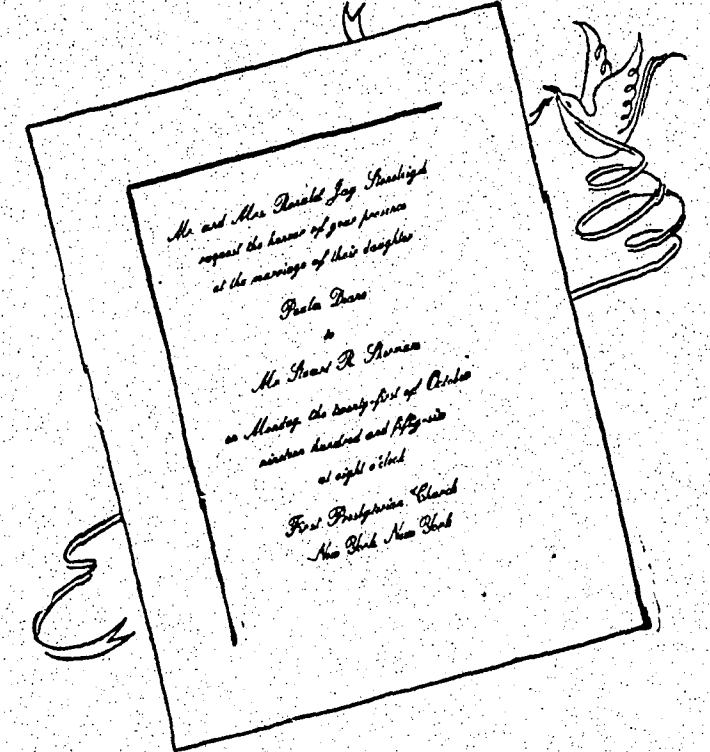 Mr. and Mrs. Ronald Jay
request the honour of your presence
at the marriage of their daughter
Diane
to
Mr. Stuart R. Sherman
on Monday, the twenty-first of October
nineteen hundred and fifty-six
at eight o'clock
First Presbyterian Church
New York, New York